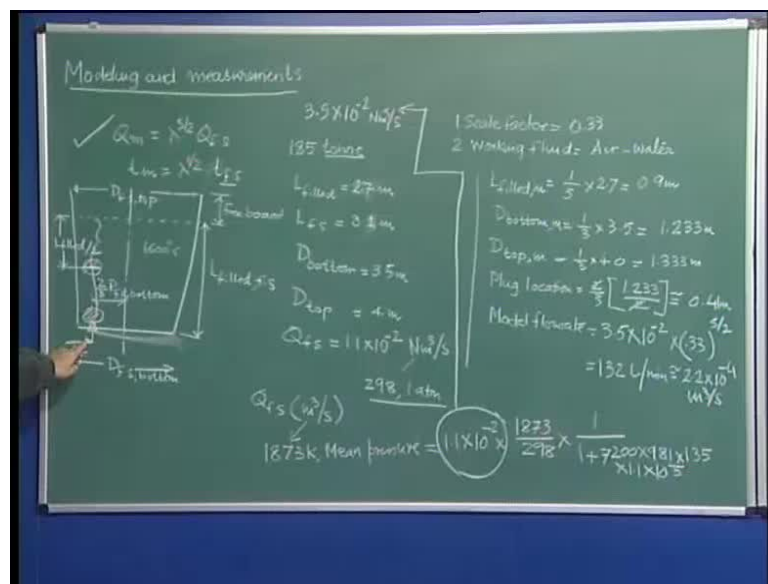 Modeling and measurements
Qm = λ^5/2 Q f.s
tm = λ^1/2 t f.s
D f.s, top
Free board
L filled, f.s
1600°c
bottom
D f.s, bottom
3.5 x 10^-2 Nm³/s
185 tonns
L filled = 2.7 m
L f.s = 3.2 m
D bottom = 3.5 m
D top = 4 m
Q f.s = 1.1 x 10^-2 Nm³/s
298, 1 atm
Q f.s (m³/s)
1873 k, Mean pressure = 1.1 x 10^-2 x 1873/298 x 1/1 + 7200 x 9.81 x 1.35
x 1.1 x 10^-5
1 Scale factor = 0.33
2 Working fluid = Air - Water
L filled, m = 1/3 x 2.7 = 0.9 m
D bottom, m = 1/3 x 3.5 = 1.233 m
D top, m = 1/3 x 4.0 = 1.333 m
Plug location = 2/3 [1.233/2] ≅ 0.4 m
Model flowrate = 3.5 x 10^-2 x (.33)^5/2
= 132 L/min ≅ 2.2 x 10^-4
m³/s